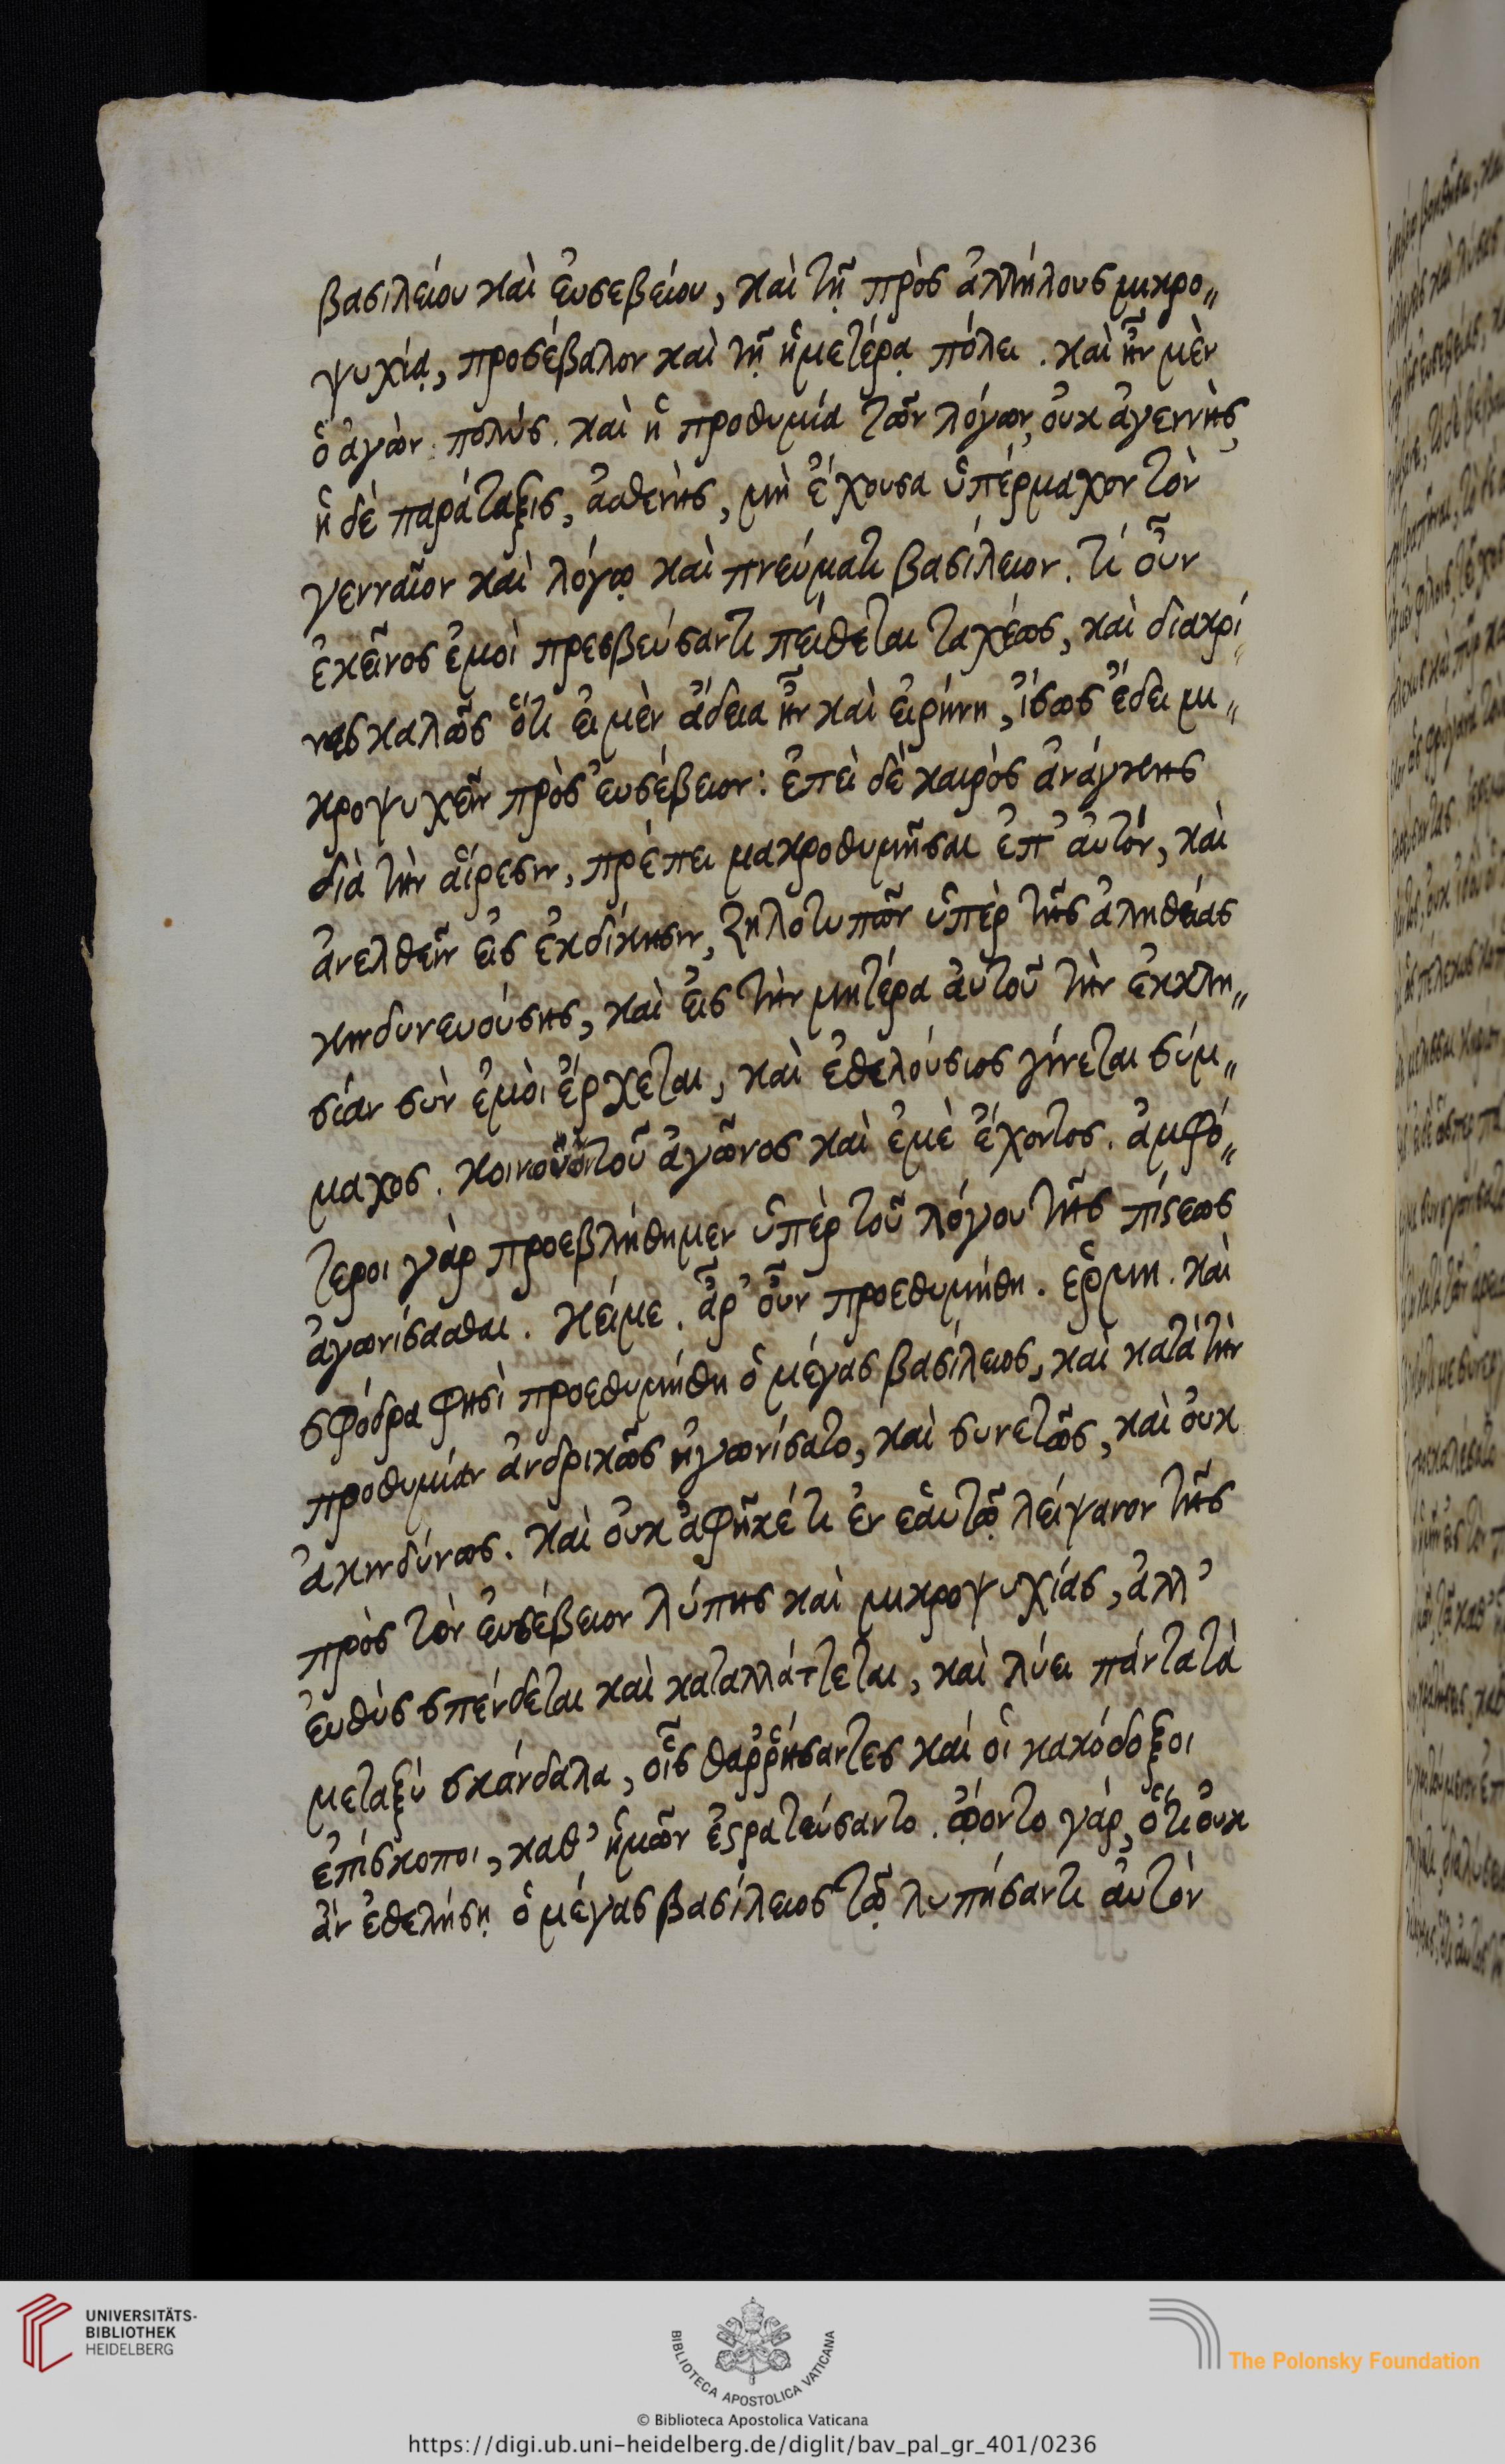 βασιλείου καὶ ἐυσεβείου, καὶ τῇ πρὸς ἀλλήλους μικρο„
ψυχίᾳ, προσέβαλον καὶ τῇ ἡμετέρᾳ πόλει. καὶ ἦν μὲν
ὁ ἀγὼν πολύς. καὶ ἡ προθυμία τῶν λόγων, οὐκ ἀγεννὴς,
ἡ δὲ παράταξις, ἀσθενής, μὴ ἔχουσα ὑπέρμαχον τὸν
γενναῖον καὶ λόγῳ καὶ πνεύματι βασίλειον. τί οὖν
ἐκεῖνος ἐμοὶ πρεσβεύσαντι πείθεται ταχέως, καὶ διακρί„
νας καλῶς ὅτι εἰ μὲν ἄδεια ἦν καὶ εἰρήνη, ἴσως ἔδει μι„
κροψυχεῖν πρὸς ἐυσέβειον: ἐπεὶ δὲ καιρὸς ἀνάγκης
διὰ τὴν αἵρεσιν, πρέπει μακροθυμῆσαι ἐπ' αὐτόν, καὶ
ἀνελθεῖν εἰς ἐκδίκησιν, ζηλοτυπῶν ὑπὲρ τῆς ἀληθείας
κινδυνευούσης, καὶ εἰς τὴν μητέρα αὐτοῦ τὴν ἐκκλη„
σίαν σὺν ἐμοὶ ἔρχεται, καὶ ἐθελούσιος γίνεται σύμ„
μαχος. κοινοῦ ὄντοῦ ἀγῶνος καὶ ἐμὲ ἔχοντος. ἀμφό„
τεροι γὰρ προεβλήθημεν ὑπὲρ τοῦ λόγου τῆς πίστεως
ἀγωνίσασθαι. κείμε. ἆρ' οὖν προεθυμήθη. ἑρμη. καὶ
σφόδρα φησὶ προεθυμήθη ὁ μέγας βασίλειος, καὶ κατὰ τὴν
προθυμίαν ἀνδρικῶς ἠγωνίσατο, καὶ συνετῶς, καὶ οὐκ
ἀκινδύνως. καὶ οὐκ ἀφῆκέ τι ἐν ἑαυτῷ λείψανον τῆς
πρὸς τὸν ἐυσέβειον λύπης καὶ μικροψυχίας, ἀλλ'
ἐυθὺς σπένδεται καὶ καταλλάττεται, καὶ λύει πάντα τὰ
μεταξὺ σκάνδαλα, οἷς θαῤῥήσαντες καὶ οἱ κακόδοξοι
ἐπίσκοποι, καθ' ἡμῶν ἐστρατεύσαντο. ᾤοντο γάρ, ὅτι οὐκ
ἂν ἐθελήσῃ ὁ μέγας βασίλειος τῷ λυπήσαντι αὐτὸν
UNIVERSITÄTS-
BIBLIOTHEK
HEIDELBERG
BIBLIOTECA APOSTOLICA VATICANA
The Polonsky Foundation
© Biblioteca Apostolica Vaticana
https://digi.ub.uni-heidelberg.de/diglit/bav_pal_gr_401/0236